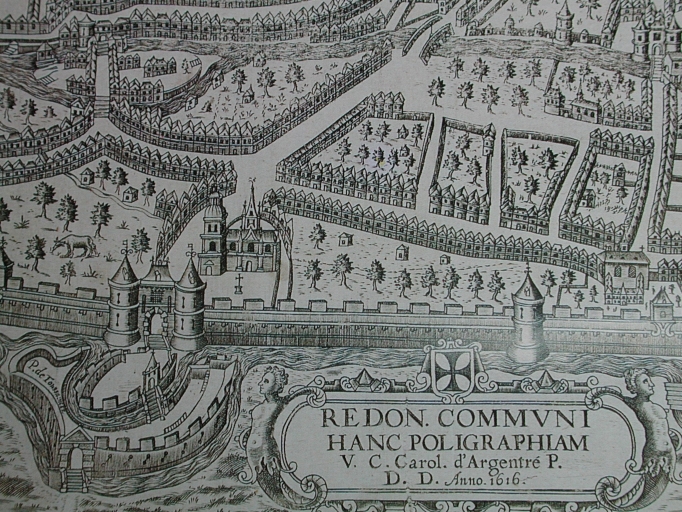 REDON. COMMVNI
HANC POLIGRAPHIAM
V. C. Carol. d'Argentré P.
D. D. Anno. 1616.